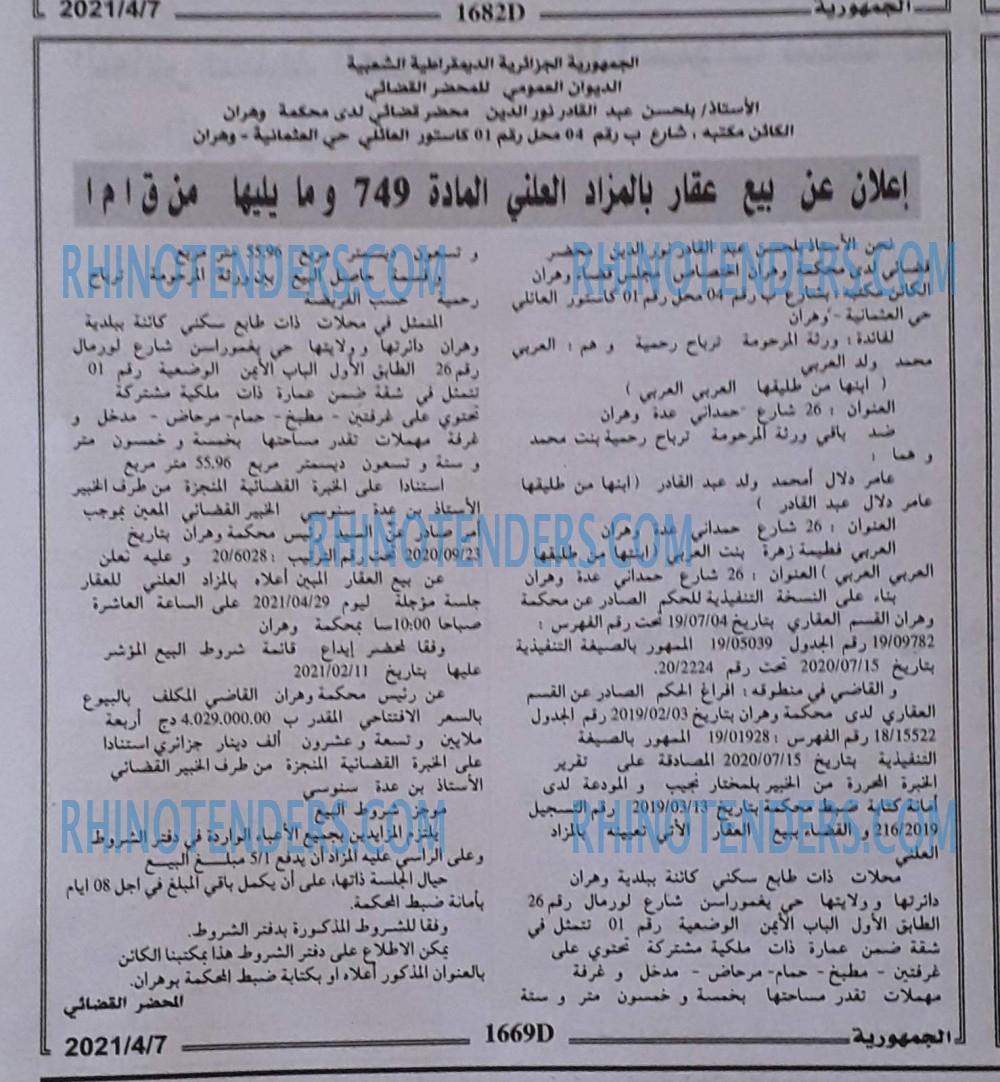 2021/4/7 1682D الجمهورية
الجمهورية الجزائرية الديمقراطية الشعبية
الديوان العمومي للمحضر القضائي
الأستاذ/ بلحسن عبد القادر نور الدين محضر قضائي لدى محكمة وهران
الكائن مكتبه : شارع ب رقم 04 محل رقم 01 كاستور العائلي حي العثمانية - وهران
إعلان عن بيع عقار بالمزاد العلني المادة 749 وما يليها من ق ا م ا
نحن الأستاذ بلحسن عبد القادر نور الدين محضر
قضائي لدى محكمة وهران اختصاص مجلس قضاء وهران
الكائن مكتبه : بشارع ب رقم 04 محل رقم 01 كاستور العائلي
حي العثمانية - وهران
لفائدة : ورثة المرحومة ترباح رحمية و هم : العربي
محمد ولد العربي
( ابنها من طليقها العربي العربي )
العنوان : 26 شارع حمداني عدة وهران
ضد باقي ورثة المرحومة ترباح رحمية بنت محمد
و هما :
عامر دلال أمحمد ولد عبد القادر (ابنها من طليقها
عامر دلال عبد القادر )
العنوان : 26 شارع حمداني عدة وهران
العربي فطيمة زهرة بنت العربي (ابنتها من طليقها
العربي العربي ) العنوان : 26 شارع حمداني عدة وهران
بناء على النسخة التنفيذية للحكم الصادر عن محكمة
وهران القسم العقاري بتاريخ 19/07/04 تحت رقم الفهرس :
19/09782 رقم الجدول 19/05039 الممهور بالصيغة التنفيذية
بتاريخ 2020/07/15 تحت رقم 20/2224.
و القاضي في منطوقه : افراغ الحكم الصادر عن القسم
العقاري لدى محكمة وهران بتاريخ 2019/02/03 رقم الجدول
18/15522 رقم الفهرس : 19/01928 الممهور بالصيغة
التنفيذية بتاريخ 2020/07/15 المصادقة على تقرير
الخبرة المحررة من الخبير بلمختار نجيب و المودعة لدى
أمانة كتابة ضبط محكمة بتاريخ 2019/03/13 رقم التسجيل
216/2019 و القضاء ببيع العقار الآتي تعيينه بالمزاد
العلني
محلات ذات طابع سكني كائنة ببلدية وهران
دائرتها و ولايتها حي يغموراسن شارع لورمال رقم 26
الطابق الأول الباب الأيمن الوضعية رقم 01 تتمثل في
شقة ضمن عمارة ذات ملكية مشتركة تحتوي على
غرفتين - مطبخ - حمام- مرحاض - مدخل و غرفة
مهملات تقدر مساحتها بخمسة و خمسون متر و ستة
و تسعون ديسمتر مربع 55.96 متر مربع
و قسمة حاصل البيع بين ورثة المرحومة ترباح
رحمية حسب الفريضة
المتمثل في محلات ذات طابع سكني كائنة ببلدية
وهران دائرتها و ولايتها حي يغموراسن شارع لورمال
رقم 26 الطابق الأول الباب الأيمن الوضعية رقم 01
تتمثل في شقة ضمن عمارة ذات ملكية مشتركة
تحتوي على غرفتين - مطبخ - حمام- مرحاض - مدخل و
غرفة مهملات تقدر مساحتها بخمسة و خمسون متر
و ستة و تسعون ديسمتر مربع 55.96 متر مربع
استنادا على الخبرة القضائية المنجزة من طرف الخبير
الأستاذ بن عدة سنوسي الخبير القضائي المعين بموجب
أمر صادر عن السيد رئيس محكمة وهران بتاريخ
2020/09/23 تحت رقم الترتيب : 20/6028 و عليه نعلن
عن بيع العقار المبين أعلاه بالمزاد العلني للعقار
جلسة مؤجلة ليوم 2021/04/29 على الساعة العاشرة
صباحا 10:00سا بمحكمة وهران
وفقا لمحضر إيداع قائمة شروط البيع المؤشر
عليها بتاريخ 2021/02/11
عن رئيس محكمة وهران القاضي المكلف بالبيوع
بالسعر الافتتاحي المقدر ب 4.029.000.00 دج أربعة
ملايين و تسعة و عشرون ألف دينار جزائري استنادا
على الخبرة القضائية المنجزة من طرف الخبير القضائي
الأستاذ بن عدة سنوسي
موجز شروط البيع
يلتزم المزايدين بجميع الأعباء الواردة في دفتر الشروط
وعلى الراسي عليه المزاد أن يدفع 5/1 مبلغ البيع
حيال الجلسة ذاتها، على أن يكمل باقي المبلغ في اجل 08 ايام
بأمانة ضبط المحكمة.
وفقا للشروط المذكورة بدفتر الشروط.
يمكن الاطلاع على دفتر الشروط هذا بمكتبنا الكائن
بالعنوان المذكور أعلاه او بكتابة ضبط المحكمة بوهران.
المحضر القضائي
الجمهورية 1669D 2021/4/7
RHINOTENDERS.COM
RHINOTENDERS.COM
RHINOTENDERS.COM
RHINOTENDERS.COM
RHINOTENDERS.COM